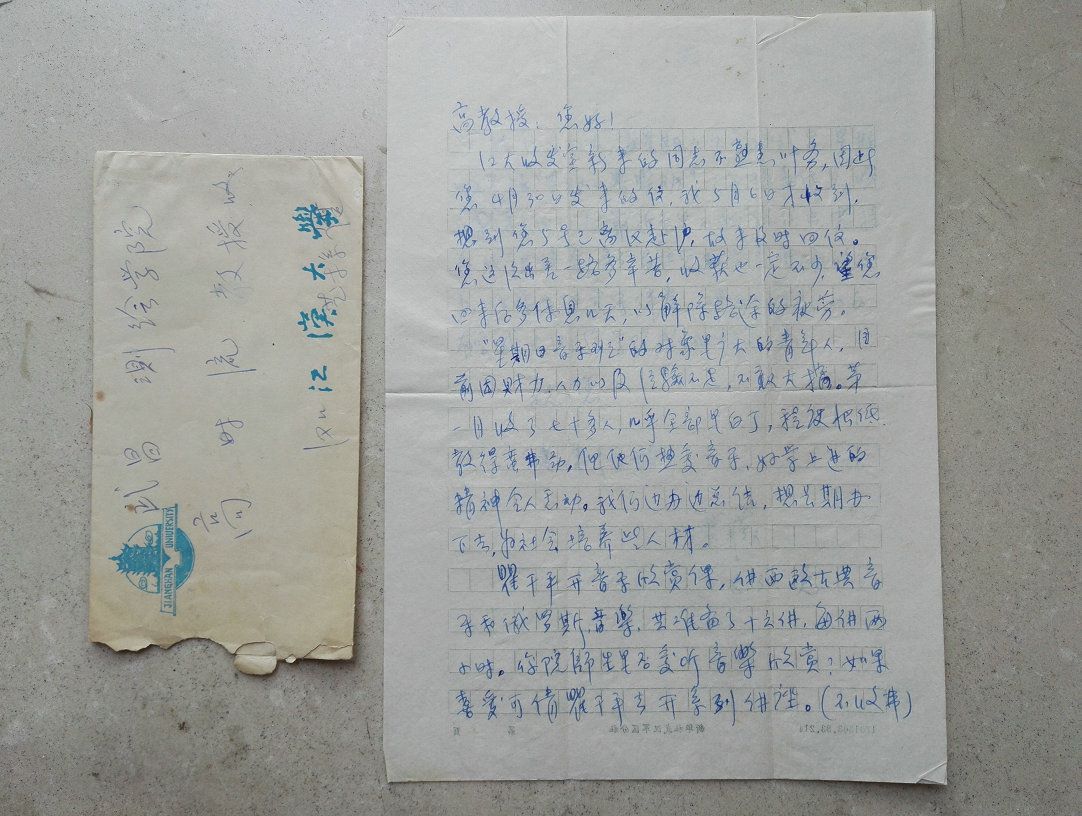 高教授：您好！
江大收发室新来的同志不熟悉业务，因此
您4月30日发来的信，我5月6日才收到，
想到您5号已离汉赴沪，故未及时回信。
您这次出差一路多辛苦，收获也一定不少，望您
回来后多休息几天，以解除旅途的疲劳。
"星期日音乐班"的对象是广大的青年人，目
前因财力、人力以及经验不足，不敢大搞。第
一月收了七十多人，几乎全部是白丁，程度极低
教得蛮费劲，但他们热爱音乐，好学上进的
精神令人感动。我们边办边总结，想长期办
下去，为社会培养些人材。
瞿干平开音乐欣赏课，供西欧古典音
乐和俄罗斯音樂，共准备了十六讲，每讲两
小时。你院师生是否爱听音樂欣赏？如果
喜爱可请瞿干平去开系列讲座。（不收费）
新华社武汉军区分社
第 页
1701508.83.21
武昌 测绘学院
高时流 教授收
汉口 江汉大學
JIANGHAN UNIVERSITY